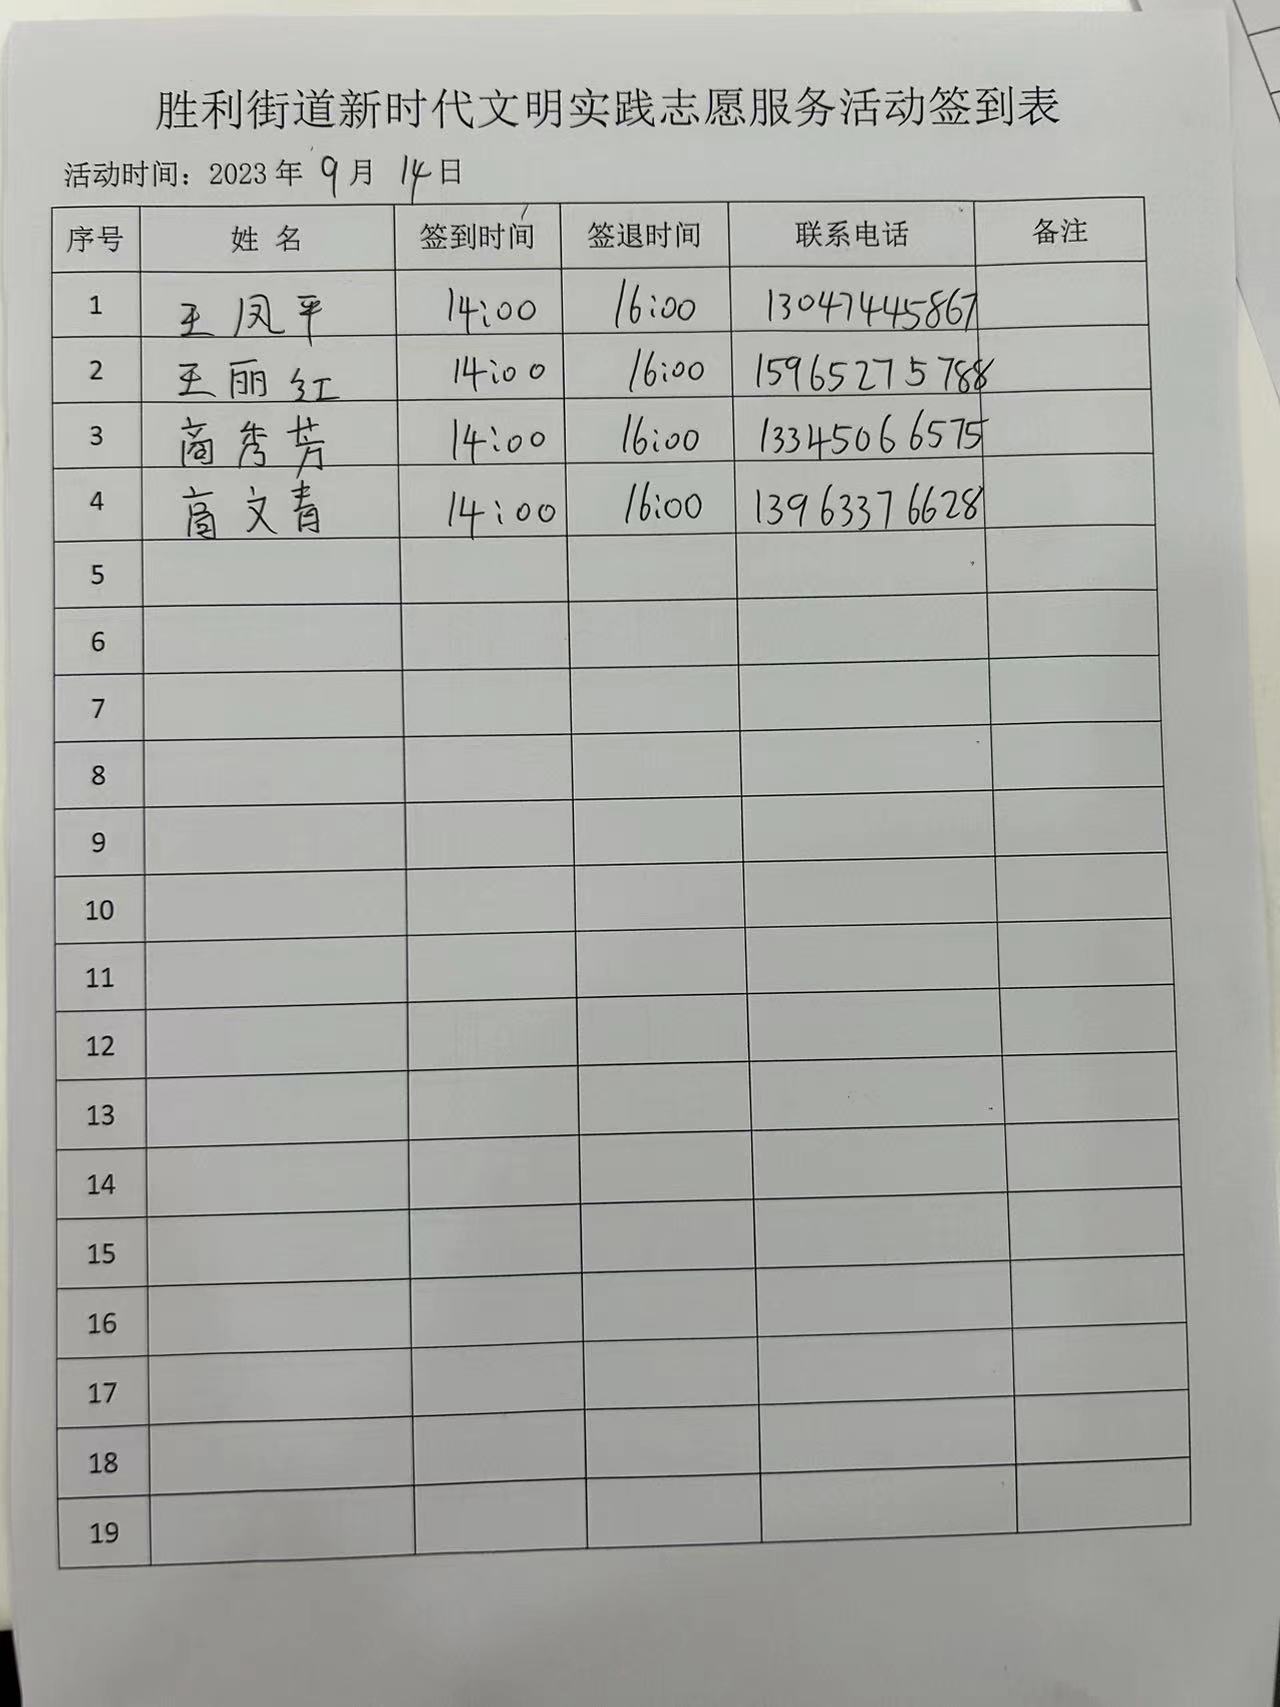 胜利街道新时代文明实践志愿服务活动签到表
活动时间：2023年 9月 14日
序号 姓 名 签到时间 签退时间 联系电话 备注
1 王凤平 14:00 16:00 13047445867
2 王丽红 14:00 16:00 15965275788
3 商秀芳 14:00 16:00 13345066575
4 商文青 14:00 16:00 13963376628
5
6
7
8
9
10
11
12
13
14
15
16
17
18
19